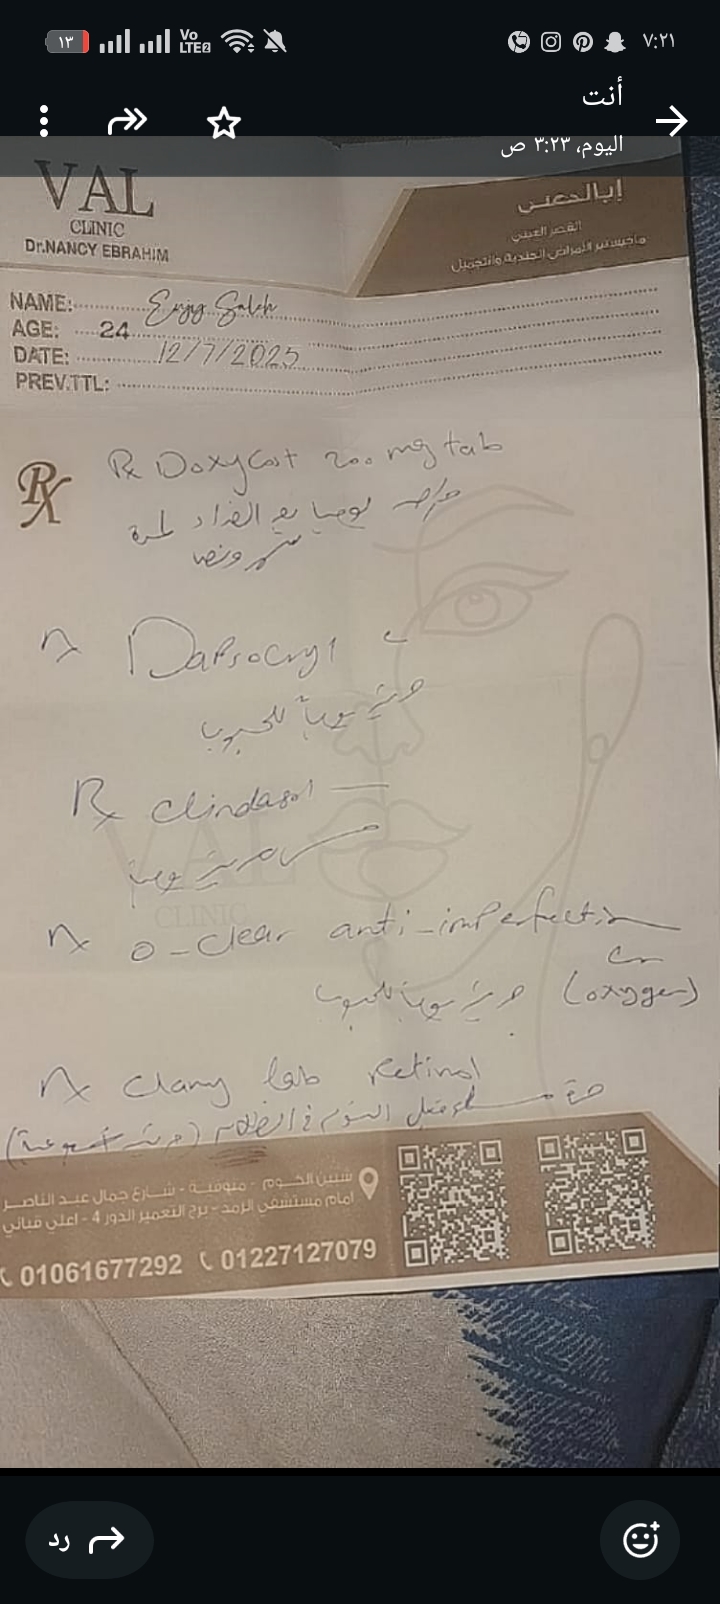 ١٣
Vo
LTE2
٧:٢١
أنت
اليوم، ٣:٢٣ ص
VAL
CLINIC
Dr.NANCY EBRAHIM
القصر العيني
ماجيستير الأمراض الجلدية والتجميل
NAME: Enjy Saleh
AGE: 24
DATE: 12/7/2025
PREV.TTL:
Rx
Rx Doxycost 200 mg tab
يوميا بعد الغداء لمدة
شهر ونص
Rx
مرتين يومياً للحبوب
Rx Clindasol
مرتين يومياً
Rx O-Clear anti-imperfection
(oxygen)
مرتين يومياً للحبوب
Rx lab Retinol
مساء قبل النوم في الظلام (مرتين اسبوعياً)
VAL
CLINIC
شبين الكوم - منوفية - شارع جمال عبد الناصر
امام مستشفى الرمد - برج التعمير الدور 4 - اعلي قباني
01061677292 01227127079
رد